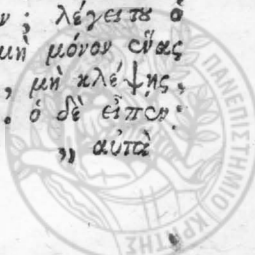 ν ; λέγει τȣ ὁ
μὴ μόνον ἕνας
, μὴ κλέψης ,
. ὁ δὲ εἶπεν :
„ αὐτὰ
ΠΑΝΕΠΙΣΤΗΜΙΟ ΚΡΗΤΗΣ